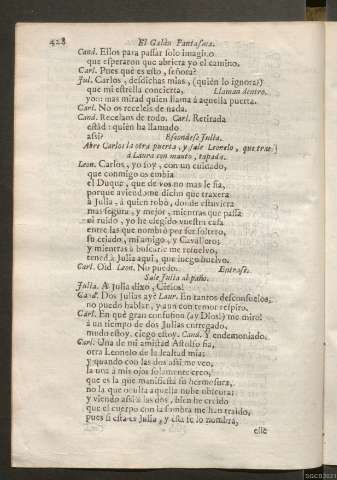 428 El Galàn Fantasma.
Cand. Ellos para passar solo imagino
que esperaron que abriera yo el camino.
Carl. Pues què es esto, señora?
Jul. Carlos, desdichas mias, (quièn lo ignora?)
que mi estrella concierta, Llaman dentro.
yo mas mirad quien llama à aquella puerta.
Carl. No os receleis de nada.
Cand. Recelaos de todo. Carl. Retirada
estàd: quièn ha llamado
assi? Escondese Julia.
Abre Carlos la otra puerta, y sale Leonelo, que trae
à Laura con manto, tapada.
Leon. Carlos, yo soy, con un cuidado,
que conmigo os embia
el Duque, que de vos no mas le fia,
porque aviendome dicho que traxera
à Julia, à quien robò, donde estuviera
mas segura, y mejor, mientras que passa
el ruido, yo he elegido vuestra casa
entre las que nombrò por ser soltero,
su criado, mi amigo, y Cavallero;
y mientras à buscarle me resuelvo,
tened à Julia aqui, que luego buelvo.
Carl. Oid. Leon. No puedo. Entrase.
Sale Julia al paño.
Julia. A Julia dixo, Cielos!
Cand. Dos Julias ay è Laur. En tantos desconsuelos,
no puedo hablar, y aun con temor respiro.
Carl. En què gran confusion (ay Dios!) me miro!
à un tiempo de dos Julias entregado,
mudo estoy, ciego estoy. Cand. Y endemoniado.
Carl. Una de mi amistad Astolfo fia,
otra Leonelo de la lealtad mia;
y quando con las dos assi me veo,
la una à mis ojos solamente creo,
que es la que manifiesta su hermosura,
no la que oculta aquella nube obscura:
y viendo assi à las dos, bien he creido
que el cuerpo con la sombra me han traido,
pues si esta es Julia, y esta se lo nombra,